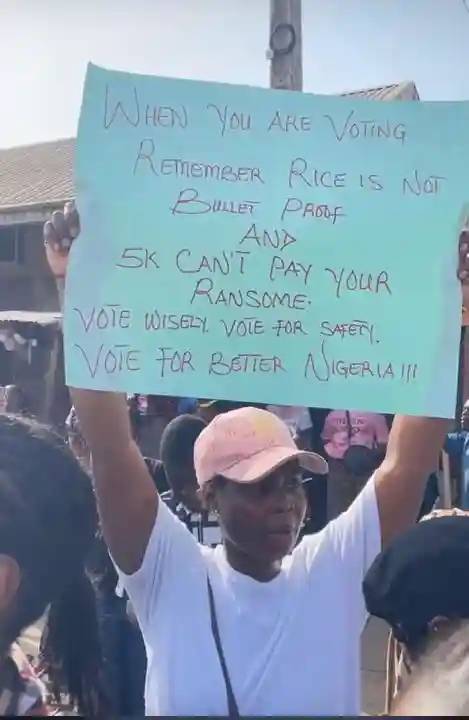 WHEN YOU ARE VOTING
REMEMBER RICE IS NOT
BULLET PROOF
AND
5K CAN'T PAY YOUR
RANSOME.
VOTE WISELY. VOTE FOR SAFETY.
VOTE FOR BETTER NIGERIA!!!